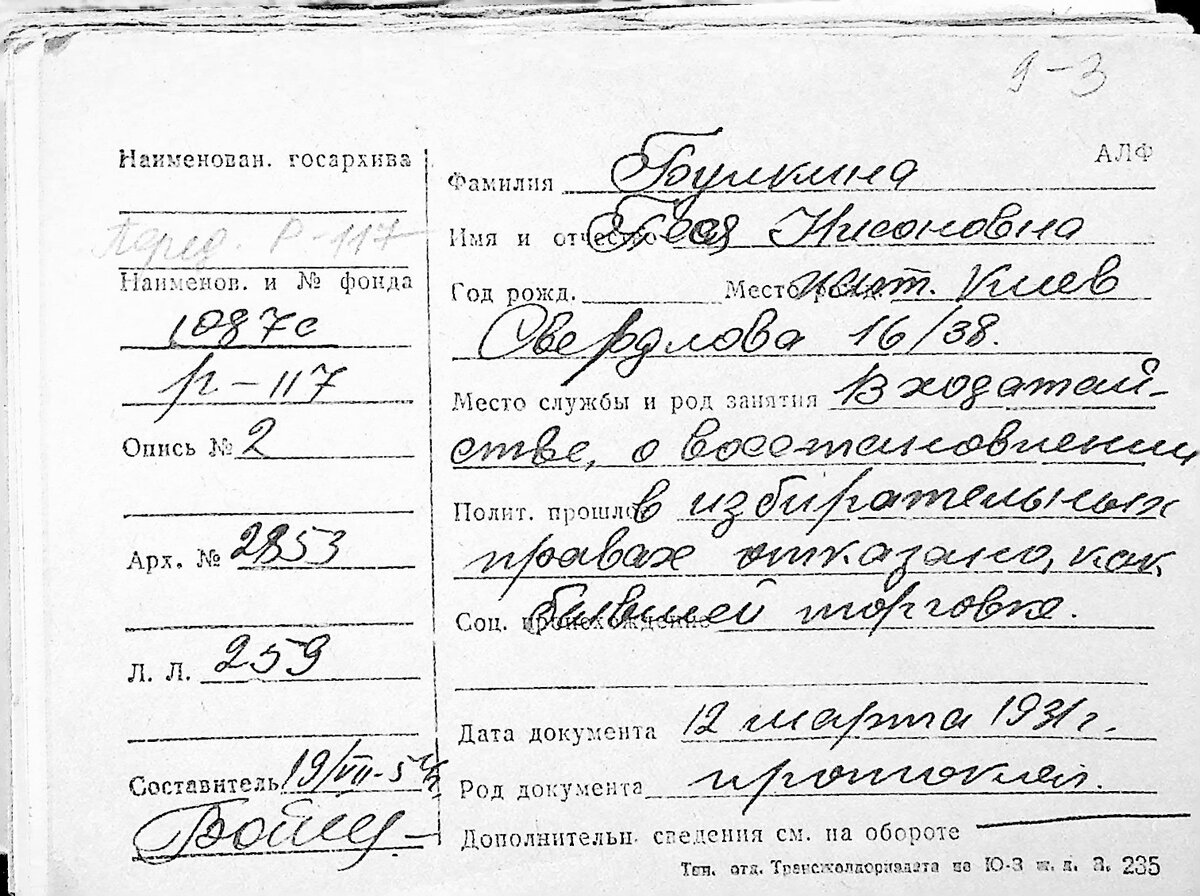 9-3
АЛФ
Наименован. госархива
Перед. Р-117
Наименов. и № фонда
1087с
р-117
Опись № 2
Арх. № 2853
Л. Л. 259
Составитель 19/VII-54
Фамилия Булкина
Имя и отчество Нисоновна
Год рожд. Место рожд. жит. Киев
Свердлова 16/38.
Место службы и род занятия В ходатай-
стве, о восстановлении
Полит. прошлое в избирательных
правах отказано, как
Соц. происхождение бывшей торговке.
Дата документа 12 марта 1931 г.
Род документа протокол.
Дополнительн. сведения см. на обороте
Тип. отд. на Ю-З ж. д. З. 235